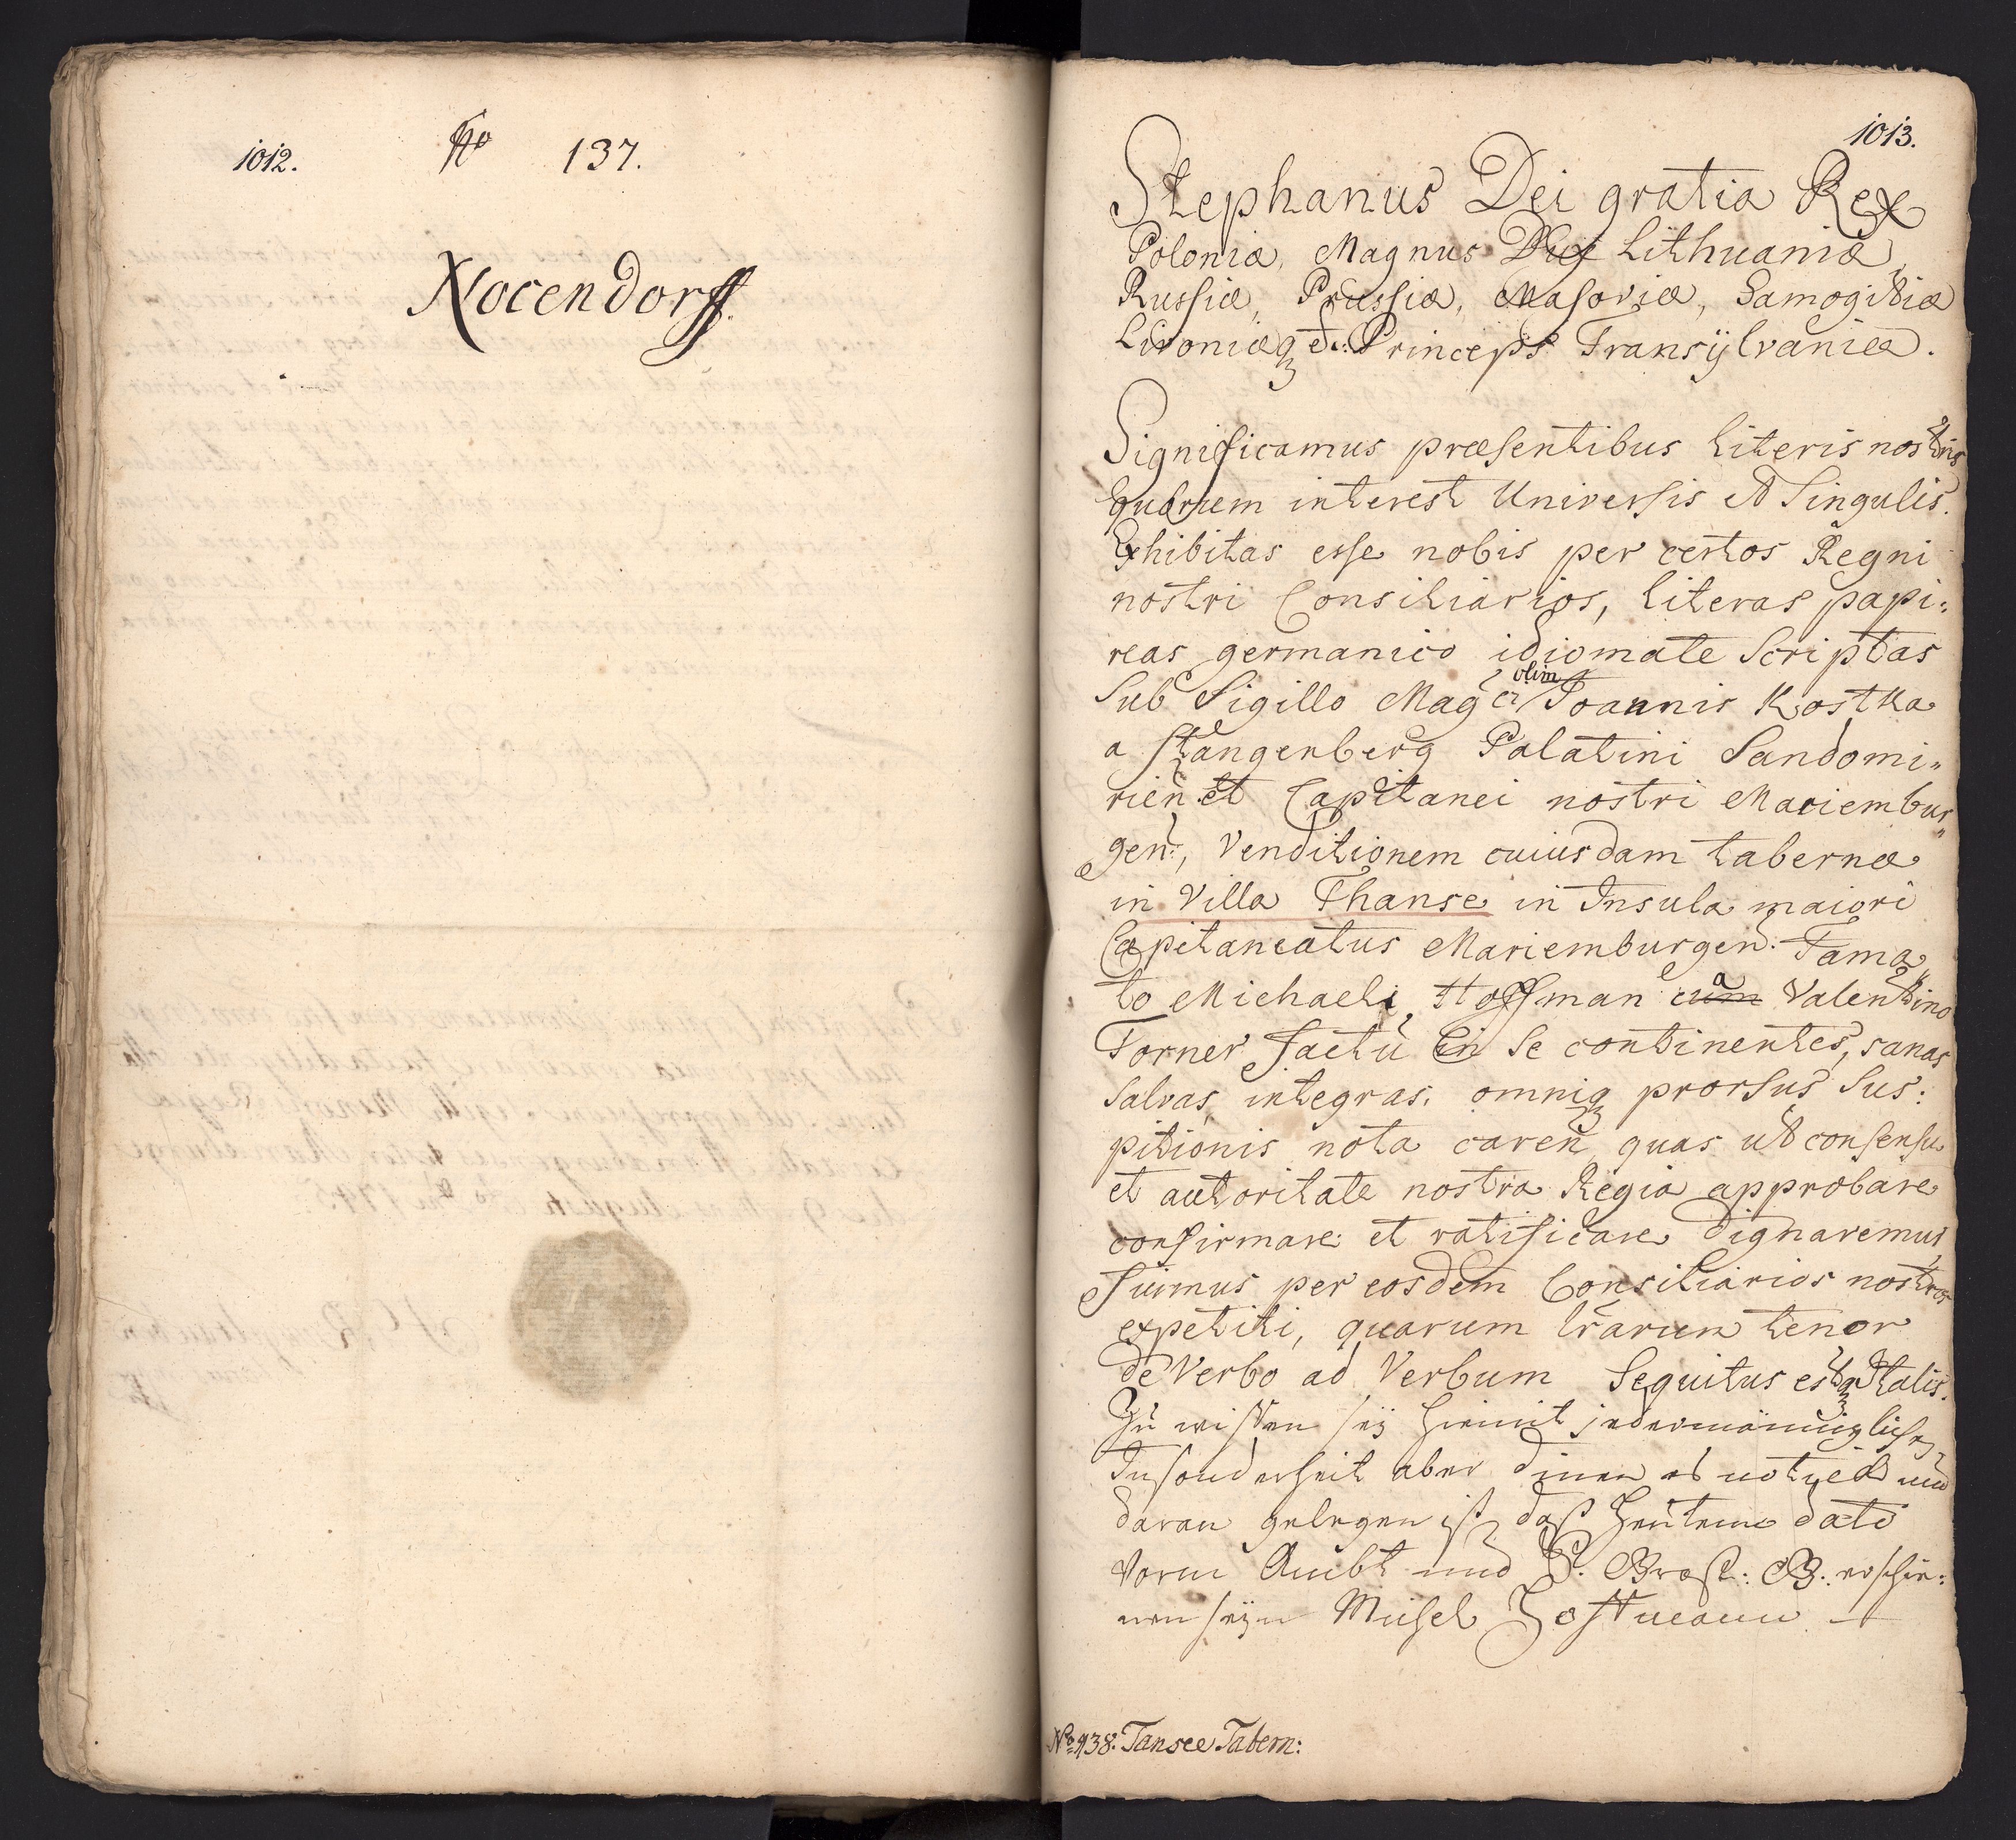 1012.
No 137.
Nocendorff.
1013.
Stephanus Dei gratia Rex
Poloniæ, Magnus Dux Lithuaniæ,
Russiæ, Prussiæ, Masoviæ, Samogitiæ
Livoniæq; etc: Princeps Transÿlvaniæ.
Significamus præsentibus literis nostris
quorum interest Universis et Singulis.
Exhibitas esse nobis per certos Regni
nostri Consiliarios, literas papi:
reas germanico idiomate Scriptas
Sub Sigillo Magci olim Joannis Kostka
a Stangenberg Palatini Sandomi„
rien et Capitanei nostri Mariembur„
gen:, Venditionem cuiusdam tabernæ
in Villa Thanse in Insula maiori
Capitaneatus Mariemburgen: Fama„
to Michaeli Hoffman cum a Valentino
Torner factu in Se continentes, sanas
Salvas, integras, omniq; prorsus Sus:
pitionis nota caren, quas ut consensu
et autoritate nostra Regia approbare
confirmare et ratificare dignaremur
Suimus per eosdem Consiliarios nostros
expetiti, quarum lrarum tenor
de Verbo ad Verbum Sequitus estq; talis.
Zu wissen seÿ hiemit jedermänniglichen,
Insonderheit aber denen es und
daran gelegen ist, daß heutem dato
Vorm Ambt und erschie:
nen seÿn Michel Hoffmann —
No 138. Tansee Tabern: